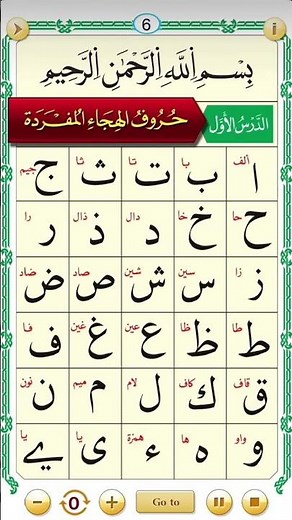 6
بِسْمِ اللَّهِ الرَّحْمٰنِ الرَّحِيمِ
الدَّرْسُ الأَوَّل حُرُوفُ الهِجَاءِ المُفْرَدَة
الف با تا ثا جيم
ا ب ت ث ج
حا خا دال ذال را
ح خ د ذ ر
زا سين شين صاد ضاد
ز س ش ص ض
طا ظا عين غين فا
ط ظ ع غ ف
قاف كاف لام ميم نون
ق ك ل م ن
واو ها همزة يا يا
و ه ء ى ے
− 0 + Go to